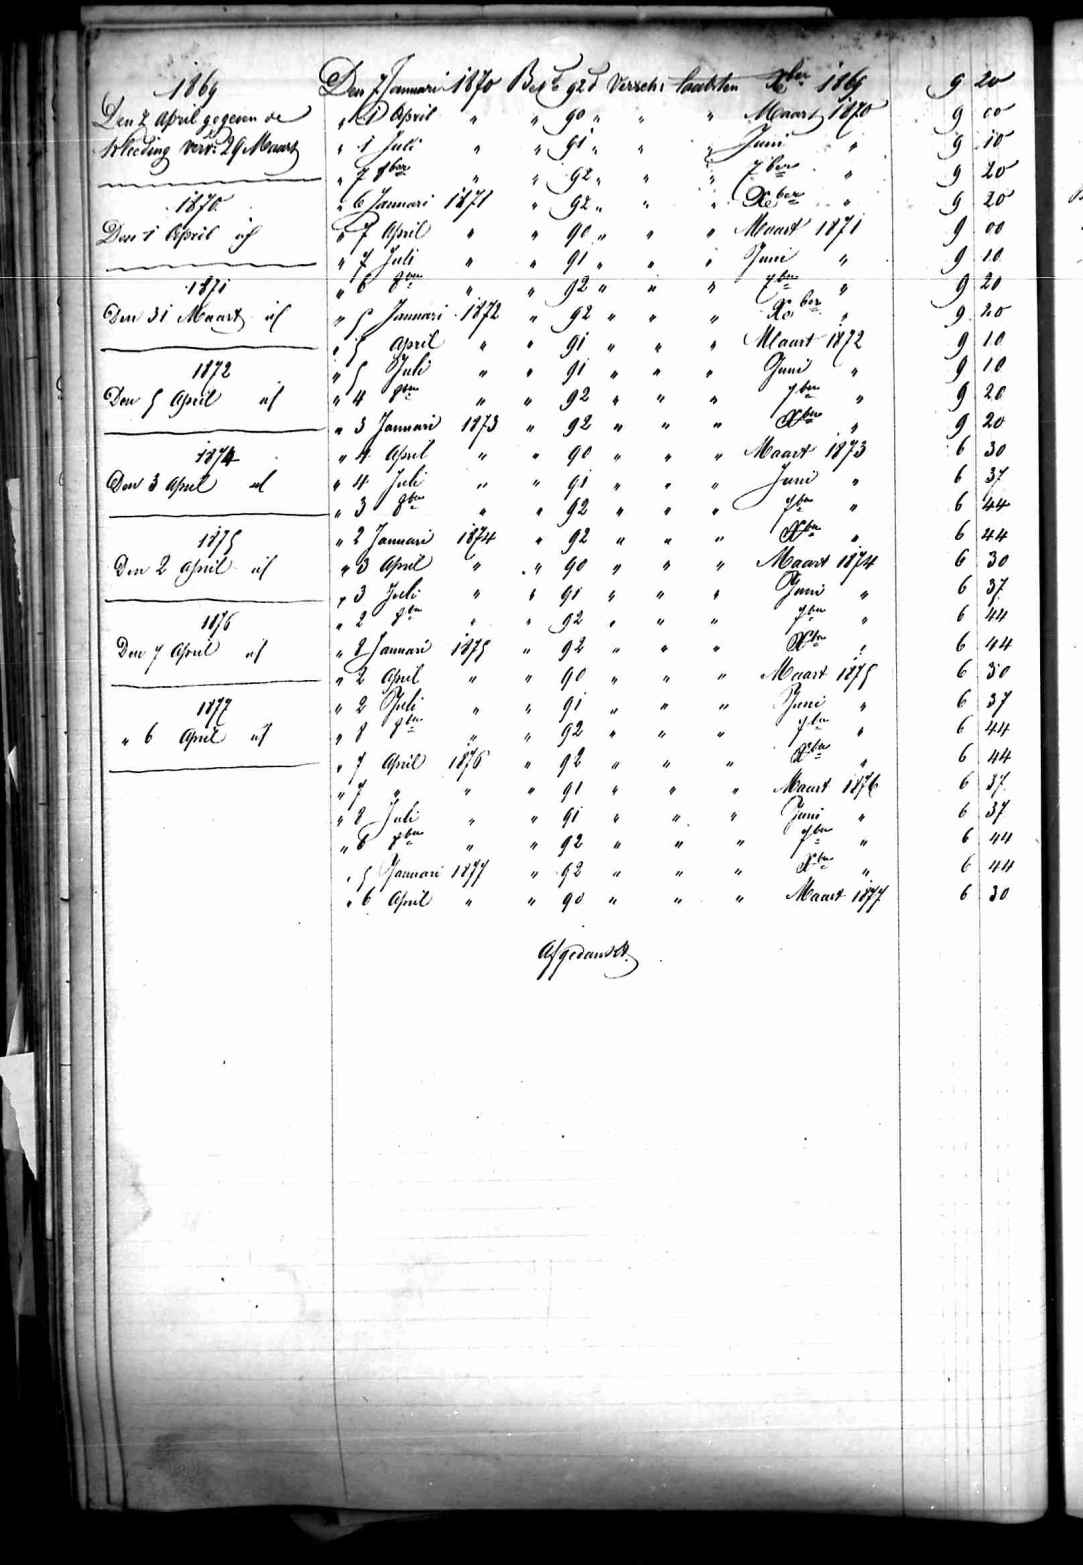 1869
Den 2 April gegeven de
kleeding verv: 29 Maart
1870
Den 1 April id
1871
Den 31 Maart id
1872
Den 5 April id
1874
Den 3 April id
1875
Den 2 April id
1876
Den 7 April id
1877
" 6 April id
Den 7 Januari 1870 Bet: 92 d Versch: laatsten Xber 1869 9 20
" 1 April " " 90 " " " Maart 1870 9 00
" 1 Juli " " 91 " " " Juni " 9 10
" 7 8ber " " 92 " " " 7ber " 9 20
" 6 Januari 1871 " 92 " " " Xber " 9 20
" 7 April " " 90 " " " Maart 1871 9 00
" 7 Juli " " 91 " " " Juni " 9 10
" 6 8ber " " 92 " " " 7ber " 9 20
" 5 Januari 1872 " 92 " " " Xber " 9 20
" 5 April " " 91 " " " Maart 1872 9 10
" 5 Juli " " 91 " " " Juni " 9 10
" 4 8ber " " 92 " " " 7ber " 9 20
" 3 Januari 1873 " 92 " " " Xber " 9 20
" 4 April " " 90 " " " Maart 1873 6 30
" 4 Juli " " 91 " " " Juni " 6 37
" 3 8ber " " 92 " " " 7ber " 6 44
" 2 Januari 1874 " 92 " " " Xber " 6 44
" 3 April " " 90 " " " Maart 1874 6 30
" 3 Juli " " 91 " " " Juni " 6 37
" 2 8ber " " 92 " " " 7ber " 6 44
" 2 Januari 1875 " 92 " " " Xber " 6 44
" 2 April " " 90 " " " Maart 1875 6 30
" 2 Juli " " 91 " " " Juni " 6 37
" 8 8ber " " 92 " " " 7ber " 6 44
" 7 April 1876 " 92 " " " Xber " 6 44
" 7 " " " 91 " " " Maart 1876 6 37
" 2 Juli " " 91 " " " Juni " 6 37
" 6 8ber " " 92 " " " 7ber " 6 44
" 5 Januari 1877 " 92 " " " Xber " 6 44
" 6 April " " 90 " " " Maart 1877 6 30
Afgedankt.